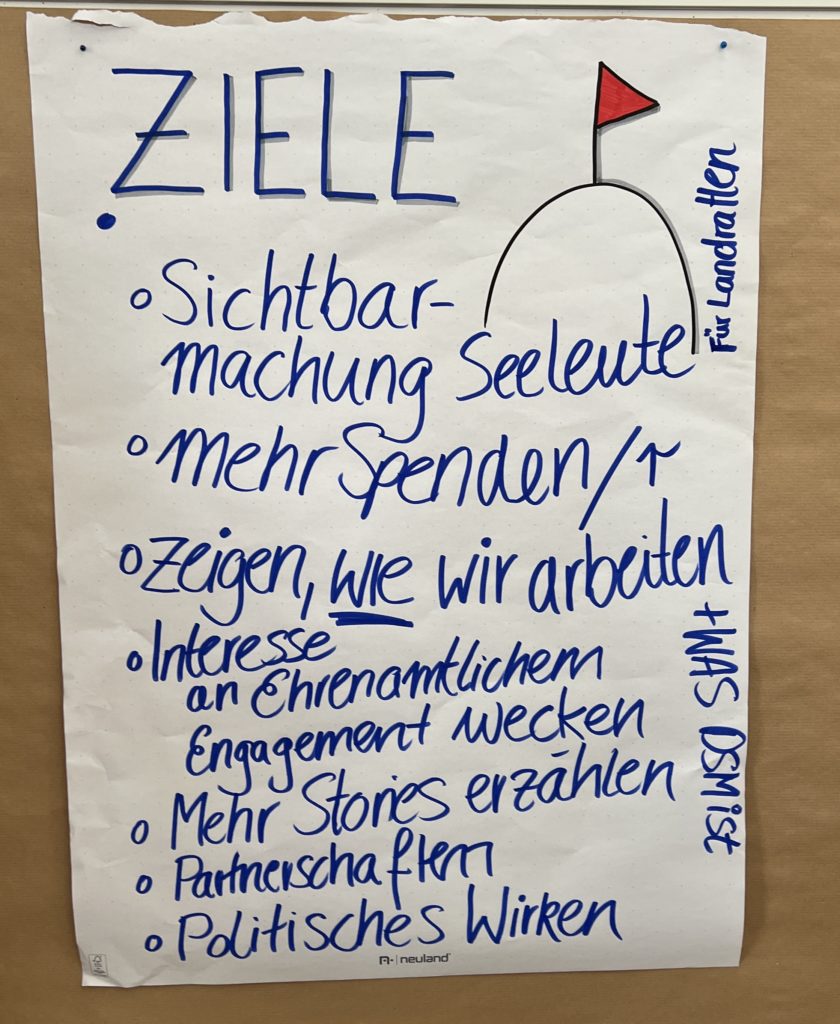 ZIELE
Für Landratten
Sichtbar-
machung Seeleute
mehr Spenden/↑
Zeigen, WIE wir arbeiten
+ WAS DSM ist
Interesse
an Ehrenamtlichem
Engagement wecken
Mehr Stories erzählen
Partnerschaften
Politisches Wirken
neuland